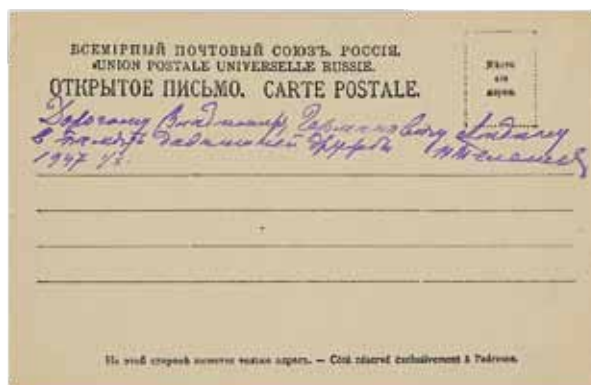 ВСЕМІРНЫЙ ПОЧТОВЫЙ СОЮЗЪ. РОССІЯ.
UNION POSTALE UNIVERSELLE RUSSIE.
ОТКРЫТОЕ ПИСЬМО. CARTE POSTALE.
Мѣсто
для
марки.
Дорогому Владимиру Германовичу Лидину
в память давнишней дружбы
1947
На этой сторонѣ пишется только адресъ. — Côté réservé exclusivement à l'adresse.